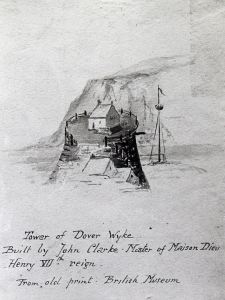 Tower of Dover Wyke
Built by John Clarke - Master of Maison Dieu
Henry VII th reign
From, old print - British Museum